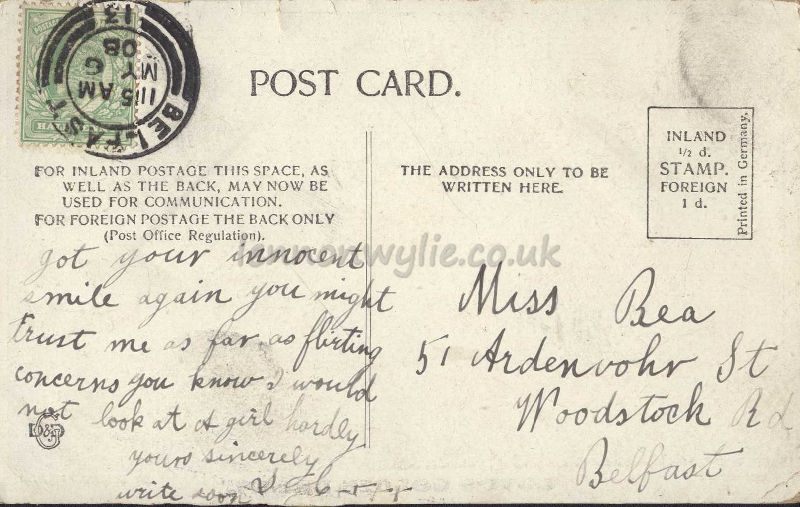 BELFAST
11 15 AM
MY 6
08
13
HA
POST CARD.
FOR INLAND POSTAGE THIS SPACE, AS
WELL AS THE BACK, MAY NOW BE
USED FOR COMMUNICATION.
FOR FOREIGN POSTAGE THE BACK ONLY
(Post Office Regulation).
THE ADDRESS ONLY TO BE
WRITTEN HERE.
INLAND
½ d.
STAMP.
FOREIGN
1 d.
Printed in Germany.
lennonwylie.co.uk
got your innocent
smile again you might
trust me as far as flirting
concerns you know I would
not look at A girl hardly
yours sincerely
write soon
Miss Bea
51 Ardenvohr St
Woodstock Rd
Belfast